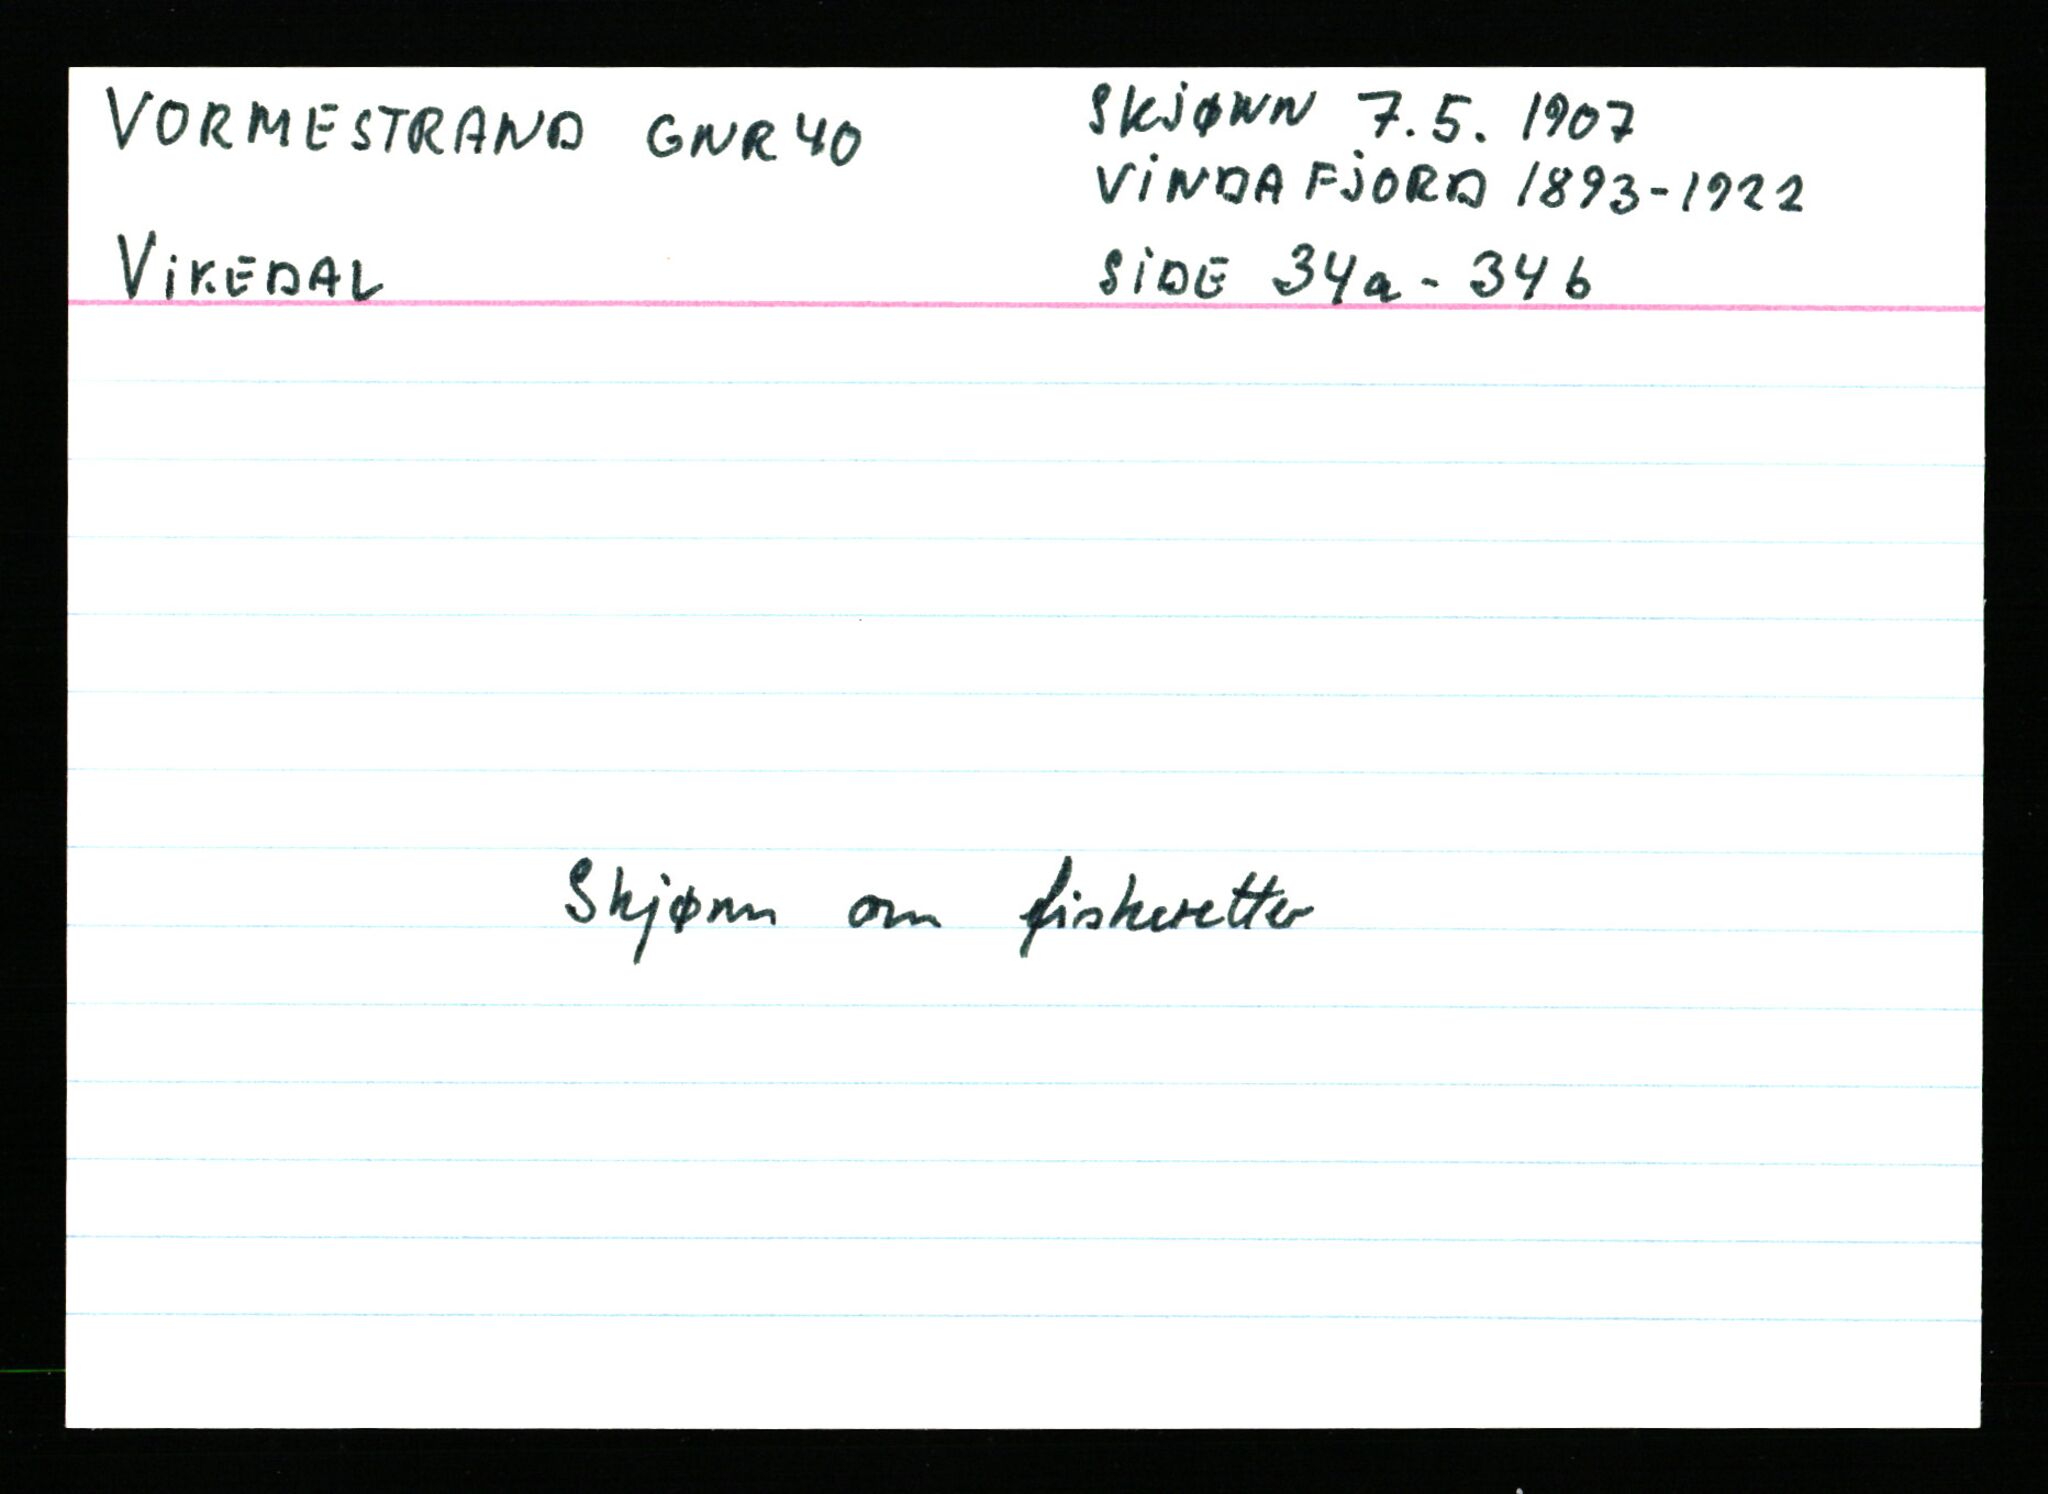 VORMESTRAND GNR 40
VIKEDAL
SKJØNN 7.5. 1907
VINDAFJORD 1893-1922
SIDE 34a - 34b
Skjønn om fiskeretter